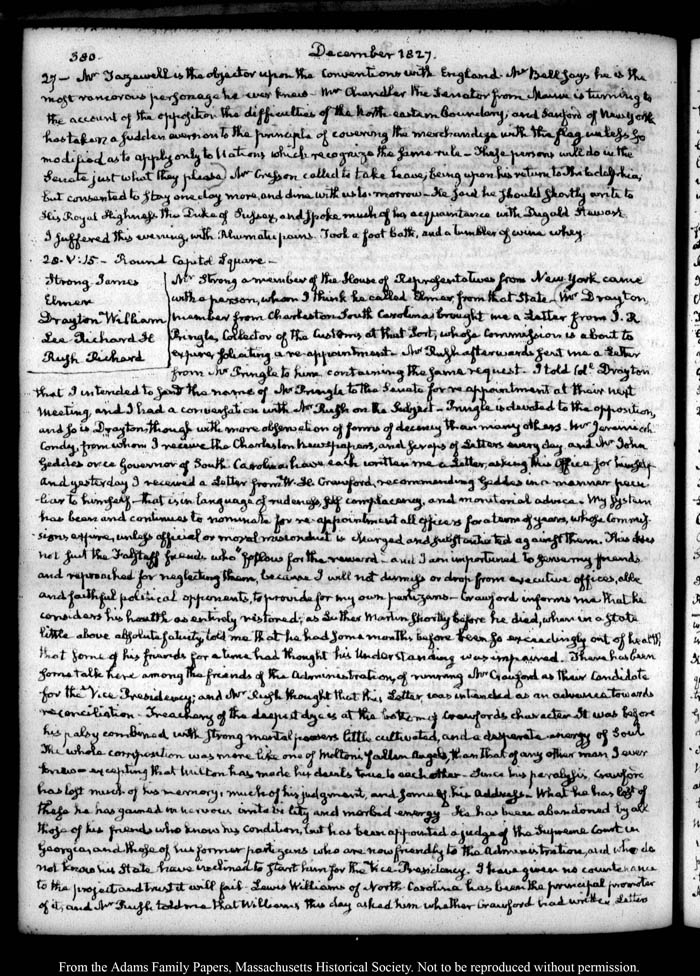 380.
December 1827.
27— Mr Tazewell is the objector upon the Conventions with England. Mr Bell says he is the
most rancorous personage he ever knew. Mr Chandler the Senator from Maine is turning to
the account of the opposition the difficulties of the North eastern Boundary; and Sanford of New York
has taken a sudden aversion to the principle of covering the merchandize with the flag unless so
modified as to apply only to Nations which recognize the same rule— These persons will do in the
Senate just what they please. Mr Cresson called to take leave, being upon his return to Philadelphia;
but consented to stay one day more, and dine with us to-morrow— He said he should shortly write to
His Royal Highness the Duke of Sussex, and spoke much of his acquaintance with Dugald Stewart
I suffered this evening, with Rheumatic pains. Took a foot bath, and a tumbler of wine whey.
28. V:15— Round Capitol Square—
Strong. James
Elmer
Drayton William
Lee Richard H
Rush Richard
Mr Strong a member of the House of Representatives from New York came
with a person, whom I think he called Elmer from that State. Mr Drayton,
member from Charleston South Carolina brought me a Letter from J. R
Pringle, Collector of the Customs at that Port, whose Commission is about to
expire, soliciting a re-appointment. Mr Rush afterwards sent me a Letter
from Mr Pringle to him containing the same request. I told Col. Drayton
that I intended to send the name of Mr Pringle to the Senate for re appointment at their next
meeting, and I had a conversation with Mr Rush on the subject— Pringle is devoted to the opposition,
and so is Drayton though with more observation of forms of decency than many others. Mr Jeremiah
Condy, from whom I receive the Charleston Newspapers, and scraps of Letters every day and Mr John
Geddes once Governor of South Carolina have each written me a Letter, asking this Office for himself
and yesterday I received a Letter from W. H. Crawford, recommending Geddes in a manner pecu-
liar to himself— that is in language of rudeness, self complacency, and monitorial advice. My System
has been and continues to nominate for re-appointment all officers for a term of years, whose Commis-
sions expire, unless official or moral misconduct is charged and substantiated against them. This does
not suit the Falstaff friends who "follow for the reward— and I am importuned to serve my friends
and reproached for neglecting them, because I will not dismiss or drop from executive offices, able
and faithful political opponents, to provide for my own partizans— Crawford informs me that he
considers his health as entirely restored; as Luther Martin shortly before he died, when in a State
little above absolute fatuity told me that he had some months before been so exceedingly out of health,
that some of his friends for a time had thought his Understanding was impaired. There has been
some talk here among the friends of the Administration, of running Mr Crawford as their Candidate
for the Vice Presidency; and Mr Rush thought that this Letter was intended as an advance towards
reconciliation— Treachery of the deepest dye is at the bottom of Crawford's character. It was before
his palsy combined with strong mental powers little cultivated, and a desperate energy of Soul
The whole composition was more like one of Milton's fallen Angels, than that of any other man I ever
knew— excepting that Milton has made his devils true to each other— Since his paralysis, Crawford
has lost much of his memory, much of his judgment, and some of his Address— What he has lost of
these he has gained in nervous irritability and morbid energy. He has been abandoned by all
those of his friends who know his condition, but has been appointed a judge of the Supreme Court in
Georgia, and those of his former partizans who are now friendly to the Administration, and who do
not know his State have inclined to start him for the Vice Presidency. I have given no countenance
to the project and trust it will fail— Lewis Williams of North Carolina has been the principal promoter
of it, and Mr Rush told me that Williams this day asked him whether Crawford had written Letters
From the Adams Family Papers, Massachusetts Historical Society. Not to be reproduced without permission.